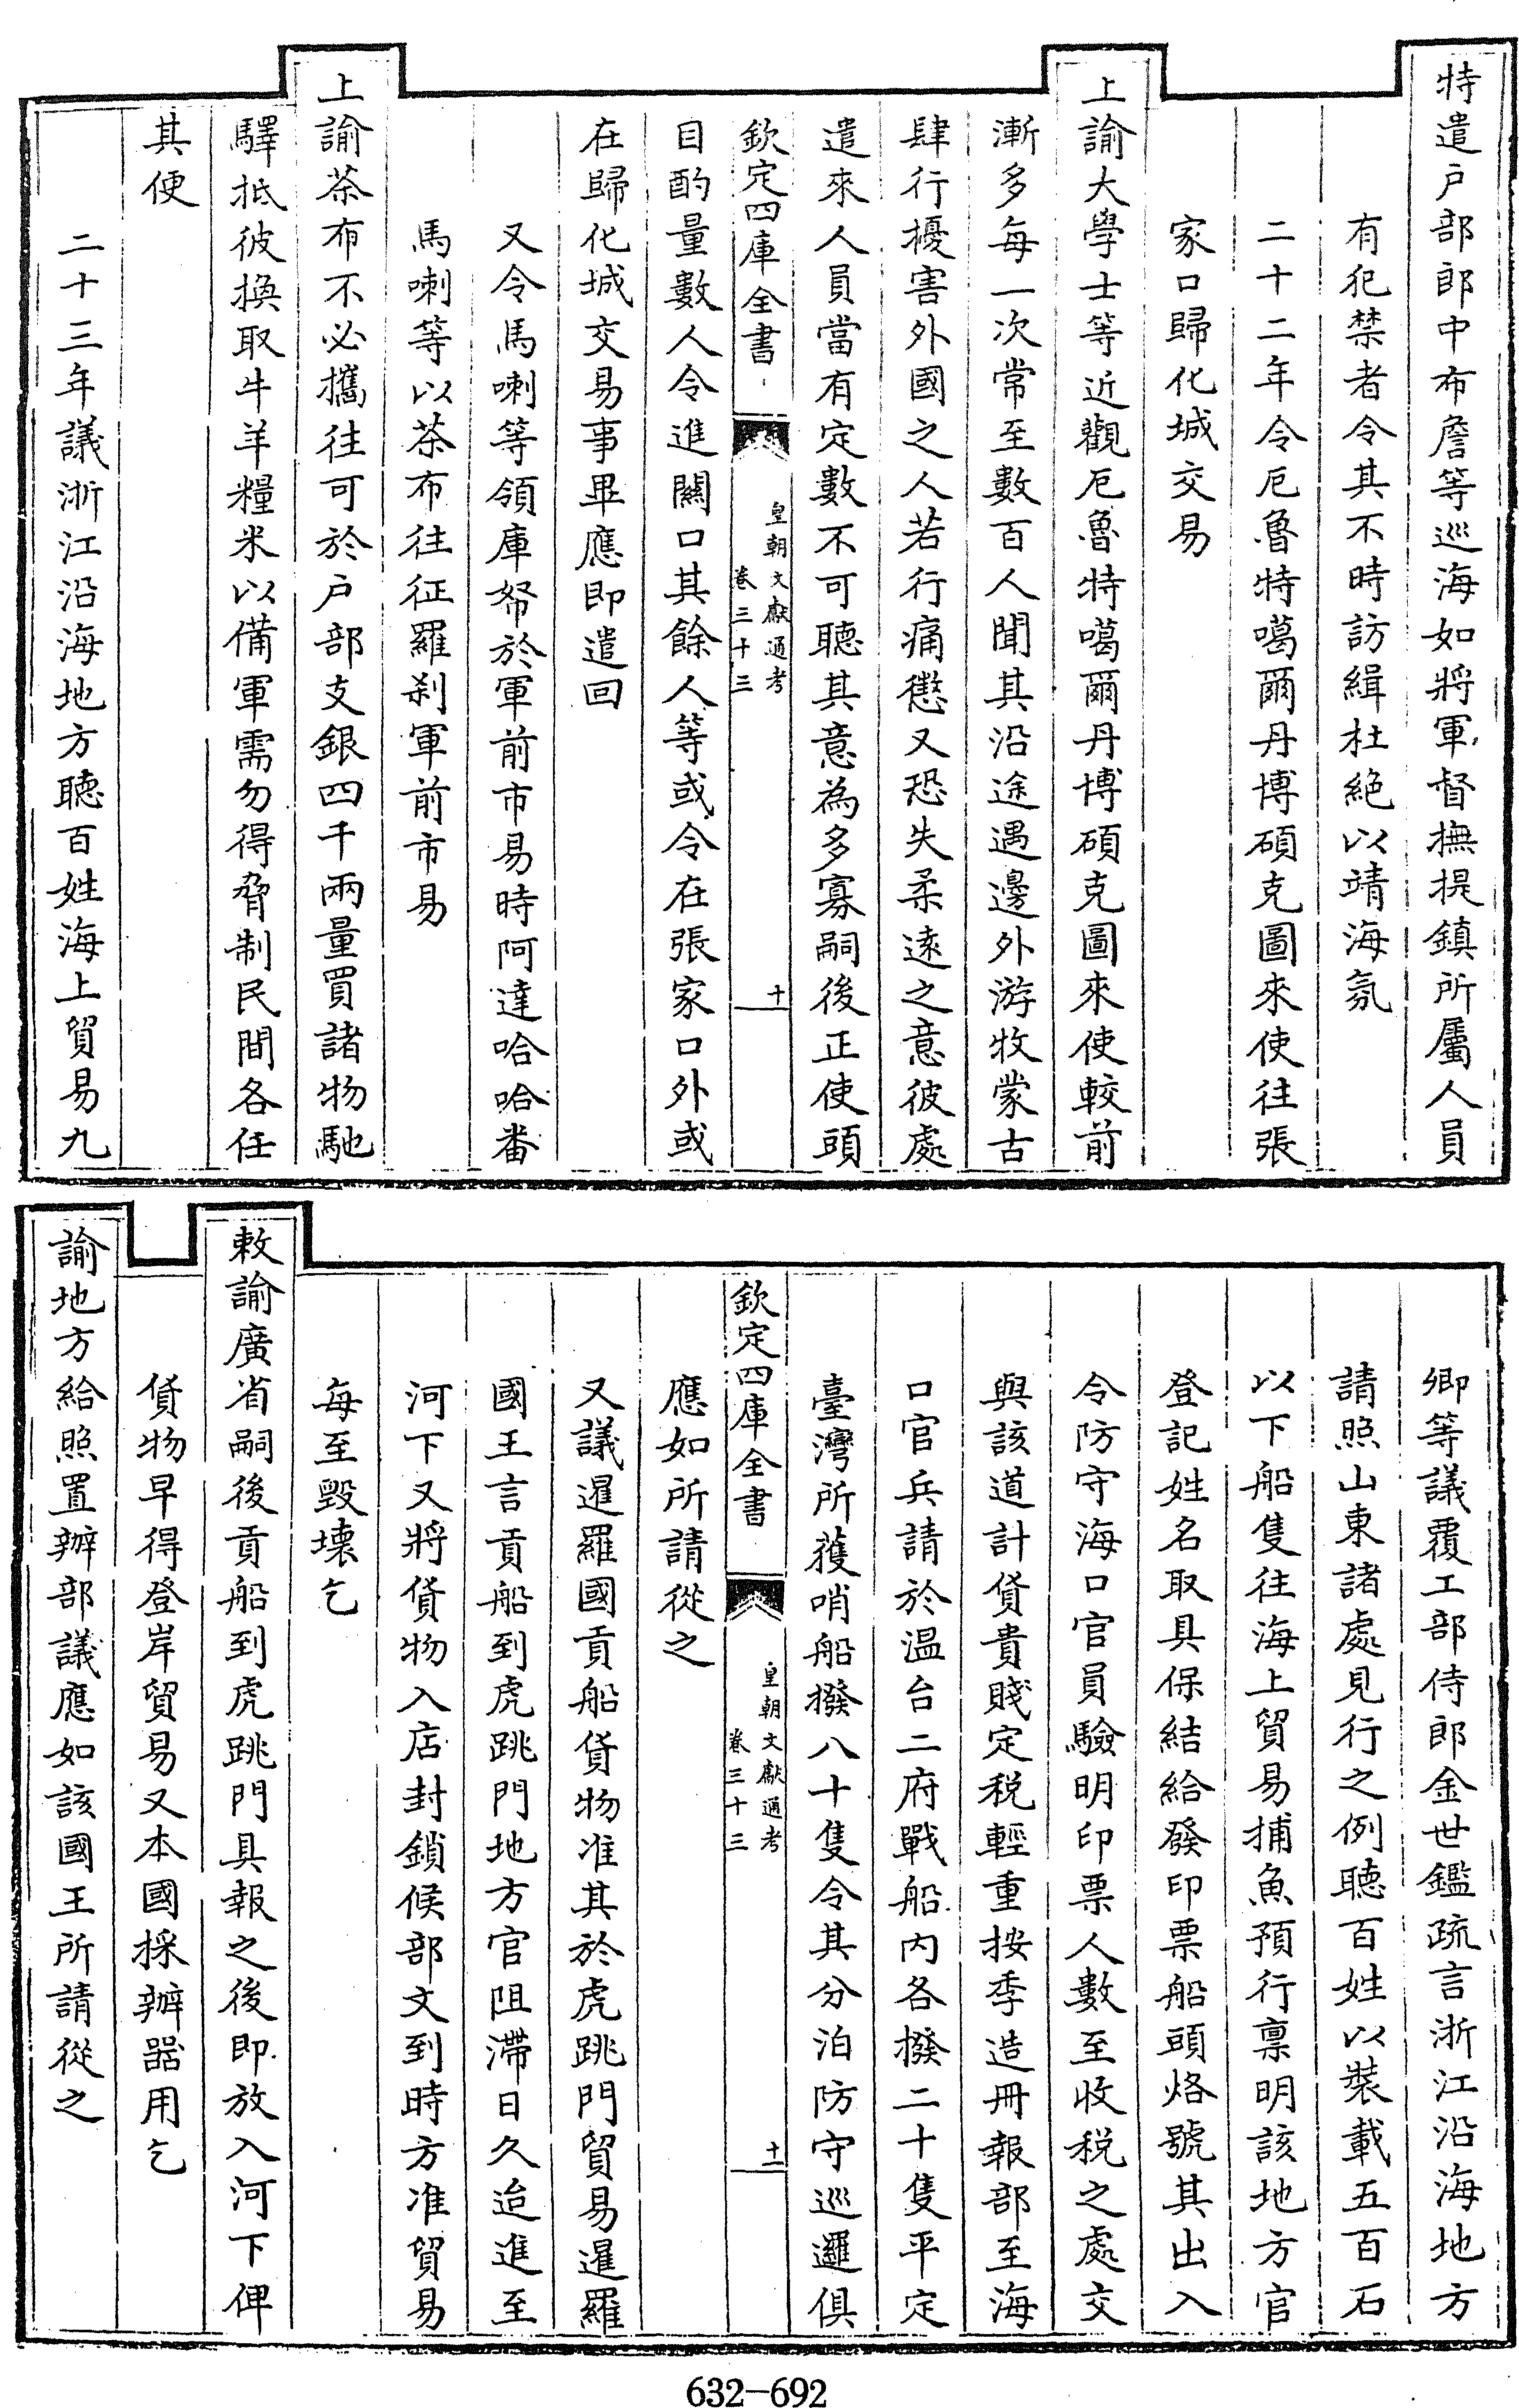 特遣户部郎中布詹等巡海如將軍督撫提鎮所屬人員
有犯禁者令其不時訪緝杜絶以靖海氛
二十二年令厄魯特噶爾丹博碩克圖來使往張
家口歸化城交易
上諭大學士等近觀厄魯特噶爾丹博碩克圖來使較前
漸多每一次常至數百人聞其沿途遇邊外游牧蒙古
肆行擾害外國之人若行痛懲又恐失柔遠之意彼處
遣來人員當有定數不可聽其意為多寡嗣後正使頭
欽定四庫全書
皇朝文獻通考
卷三十三
十
目酌量數人令進關口其餘人等或令在張家口外或
在歸化城交易事畢應即遣回
又令馬喇等領庫帑於軍前市易時阿達哈哈番
馬喇等以茶布往征羅剎軍前市易
上諭茶布不必攜往可於户部支銀四千兩量買諸物馳
驛抵彼換取牛羊糧米以備軍需勿得脅制民間各任
其便
二十三年議浙江沿海地方聽百姓海上貿易九
卿等議覆工部侍郎金世鑑疏言浙江沿海地方
請照山東諸處見行之例聽百姓以裝載五百石
以下船隻往海上貿易捕魚預行禀明該地方官
登記姓名取具保結給發印票船頭烙號其出入
令防守海口官員驗明印票人數至收税之處交
與該道計貨貴賤定税輕重按季造冊報部至海
口官兵請於温台二府戰船内各撥二十隻平定
臺灣所獲哨船撥八十隻令其分泊防守巡邏俱
欽定四庫全書
皇朝文獻通考
卷三十三
十一
應如所請從之
又議暹羅國貢船貨物准其於虎跳門貿易暹羅
國王言貢船到虎跳門地方官阻滯日久迨進至
河下又將貨物入店封鎖候部文到時方准貿易
每至毁壞乞
敕諭廣省嗣後貢船到虎跳門具報之後即放入河下俾
貨物早得登岸貿易又本國採辦器用乞
諭地方給照置辦部議應如該國王所請從之
632-692